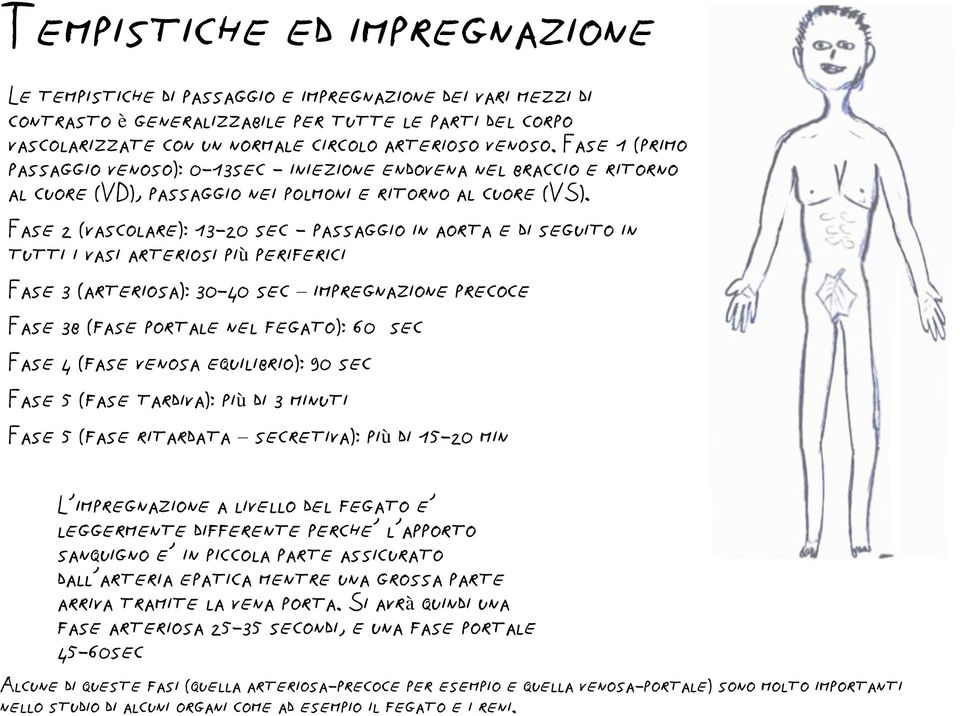 TEMPISTICHE ED IMPREGNAZIONE
LE TEMPISTICHE DI PASSAGGIO E IMPREGNAZIONE DEI VARI MEZZI DI
CONTRASTO è GENERALIZZABILE PER TUTTE LE PARTI DEL CORPO
VASCOLARIZZATE CON UN NORMALE CIRCOLO ARTERIOSO VENOSO. FASE 1 (PRIMO
PASSAGGIO VENOSO): 0-13SEC - INIEZIONE ENDOVENA NEL BRACCIO E RITORNO
AL CUORE (VD), PASSAGGIO NEI POLMONI E RITORNO AL CUORE (VS).
FASE 2 (VASCOLARE): 13-20 SEC - PASSAGGIO IN AORTA E DI SEGUITO IN
TUTTI I VASI ARTERIOSI PIù PERIFERICI
FASE 3 (ARTERIOSA): 30-40 SEC – IMPREGNAZIONE PRECOCE
FASE 3B (FASE PORTALE NEL FEGATO): 60 SEC
FASE 4 (FASE VENOSA EQUILIBRIO): 90 SEC
FASE 5 (FASE TARDIVA): PIù DI 3 MINUTI
FASE 5 (FASE RITARDATA – SECRETIVA): PIù DI 15-20 MIN
L'IMPREGNAZIONE A LIVELLO DEL FEGATO E'
LEGGERMENTE DIFFERENTE PERCHE' L'APPORTO
SANQUIGNO E' IN PICCOLA PARTE ASSICURATO
DALL'ARTERIA EPATICA MENTRE UNA GROSSA PARTE
ARRIVA TRAMITE LA VENA PORTA. SI AVRà QUINDI UNA
FASE ARTERIOSA 25-35 SECONDI, E UNA FASE PORTALE
45-60SEC
ALCUNE DI QUESTE FASI (QUELLA ARTERIOSA-PRECOCE PER ESEMPIO E QUELLA VENOSA-PORTALE) SONO MOLTO IMPORTANTI
NELLO STUDIO DI ALCUNI ORGANI COME AD ESEMPIO IL FEGATO E I RENI.